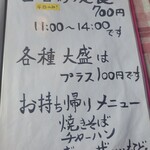 700円
11:00〜14:00
です
各種大盛は
プラス100円です
お持ち帰りメニュー
焼きそば
チャーハン